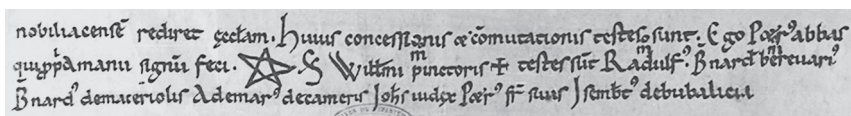 nobiliacensē rediret ęccłam. Huius concessionis & cōmutationis testes sunt. Ego Petr⁹ abbas
qui ppͥa manu signū feci. S Willmi pinctoris + testes sūt Radulf⁹ Bnard⁹
Bnard⁹ demaceriolis Ademar⁹ decameris Johs iudex Petr⁹ fr̄ suus Isemb̄t⁹ debubalicia